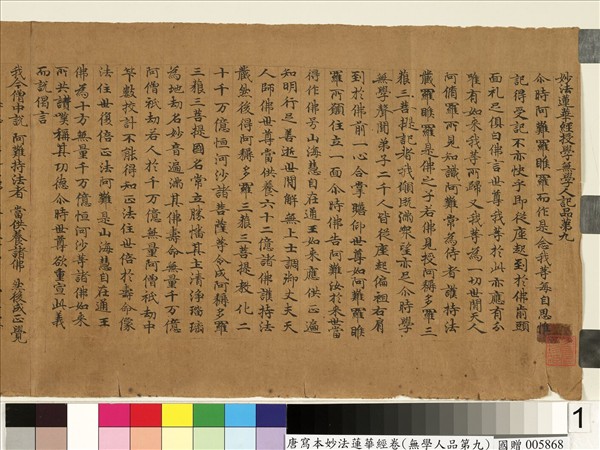 妙法蓮華經授學無學人記品第九
尒時阿難羅睺羅而作是念我等每自思惟
設得受記不亦快乎即從座起到於佛前頭
面礼足俱白佛言世尊我等於此亦應有分
唯有如來我等所歸又我等為一切世間天人
阿脩羅所見知識阿難常為侍者護持法
藏羅睺羅是佛之子若佛見授阿耨多羅三
藐三菩提記者我願既滿衆望亦足尒時學
無學聲聞弟子二千人皆從座起偏袒右肩
到於佛前一心合掌瞻仰世尊如阿難羅睺
羅所願住立一面尒時佛告阿難汝於來世當
得作佛号山海慧自在通王如來應供正遍
知明行足善逝世間解無上士調御丈夫天
人師佛世尊當供養六十二億諸佛護持法
藏然後得阿耨多羅三藐三菩提教化二
十千万億恒河沙諸菩薩等令成阿耨多羅
三藐三菩提國名常立勝幡其土清淨瑠璃
為地劫名妙音遍滿其佛壽命無量千万億
阿僧祇劫若人於千万億無量阿僧祇劫中
筭數挍計不能得知正法住世倍於壽命像
法住世復倍正法阿難是山海慧自在通王
佛為十方無量千万億恒河沙等諸佛如來
所共讃嘆稱其功德尒時世尊欲重宣此義
而說偈言
我今僧中說 阿難持法者 當供養諸佛 然後成正覺
1
唐寫本妙法蓮華經卷(無學人品第九) 國贈 005868